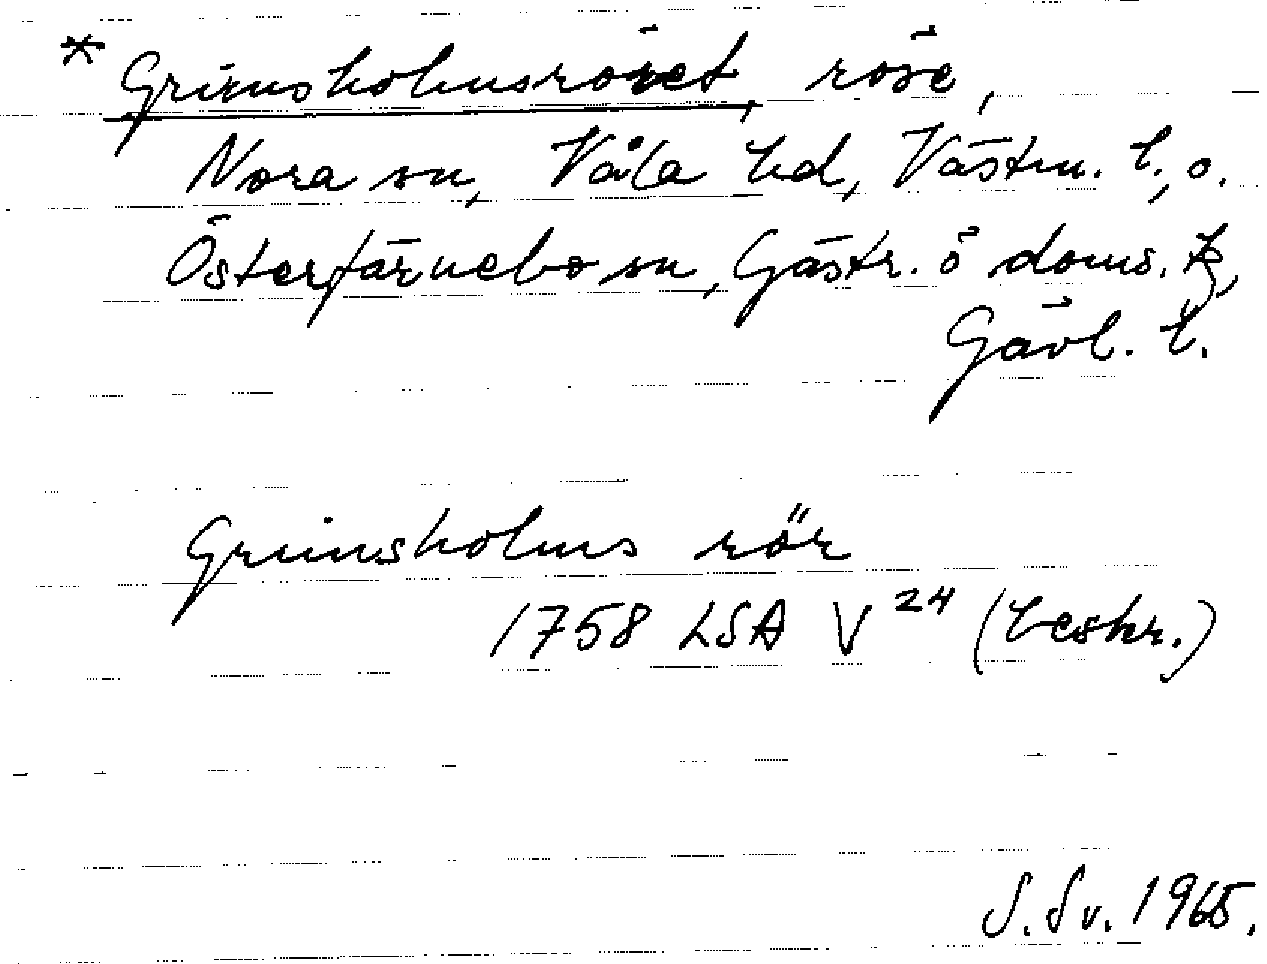 * Grimsholmsröret, röse,
Nora sn, Våla hd, Västm. l., o.
Österfärnebo sn, Gästr. ö doms.
Gävl. l.
Grimsholms rör
1758 LSA V 24 (beskr.)
S. Sv. 1965.